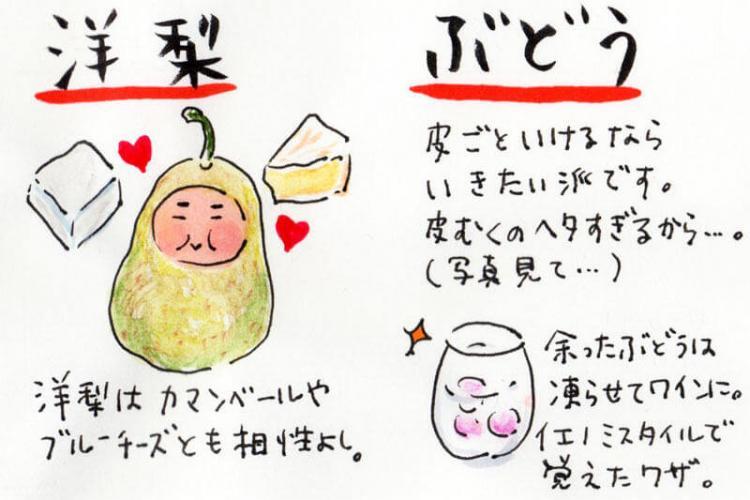 洋梨
洋梨はカマンベールや
ブルーチーズとも相性よし。
ぶどう
皮ごといけるなら
いきたい派です。
皮むくのヘタすぎるから…。
(写真見て…)
余ったぶどうは
凍らせてワインに。
イエノミスタイルで
覚えたワザ。